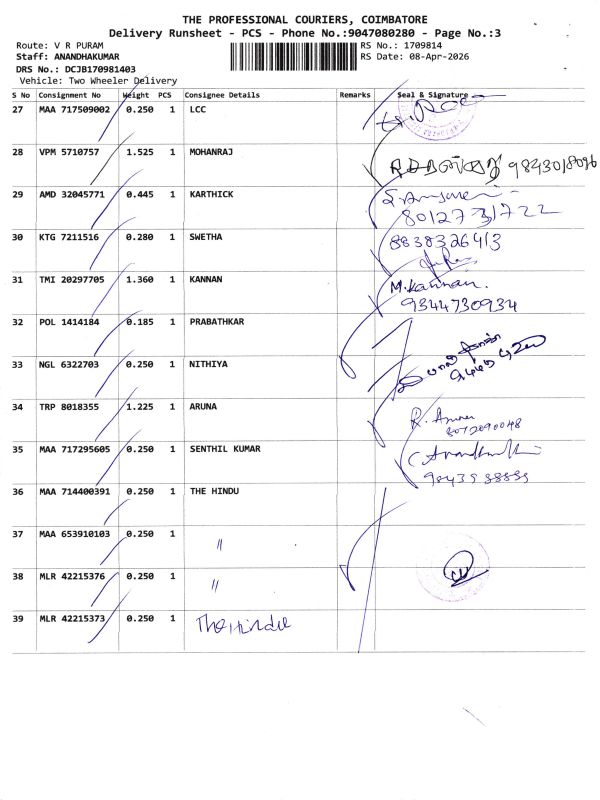 THE PROFESSIONAL COURIERS, COIMBATORE
Delivery Runsheet - PCS - Phone No.:9047080280 - Page No.:3
Route: V R PURAM
RS No.: 1709814
Staff: ANANDHAKUMAR
RS Date: 08-Apr-2026
DRS No.: DCJB170981403
Vehicle: Two Wheeler Delivery
S No Consignment No Weight PCS Consignee Details Remarks Seal & Signature
27 MAA 717509002 0.250 1 LCC
28 VPM 5710757 1.525 1 MOHANRAJ
29 AMD 32045771 0.445 1 KARTHICK
8012731722
30 KTG 7211516 0.280 1 SWETHA 8838326413
31 TMI 20297705 1.360 1 KANNAN M.Kannan.
9344730934
32 POL 1414184 0.185 1 PRABATHKAR
33 NGL 6322703 0.250 1 NITHIYA
34 TRP 8018355 1.225 1 ARUNA R. Aruna
8072090048
35 MAA 717295605 0.250 1 SENTHIL KUMAR
36 MAA 714400391 0.250 1 THE HINDU
37 MAA 653910103 0.250 1 "
38 MLR 42215376 0.250 1 "
39 MLR 42215373 0.250 1 The Hindu